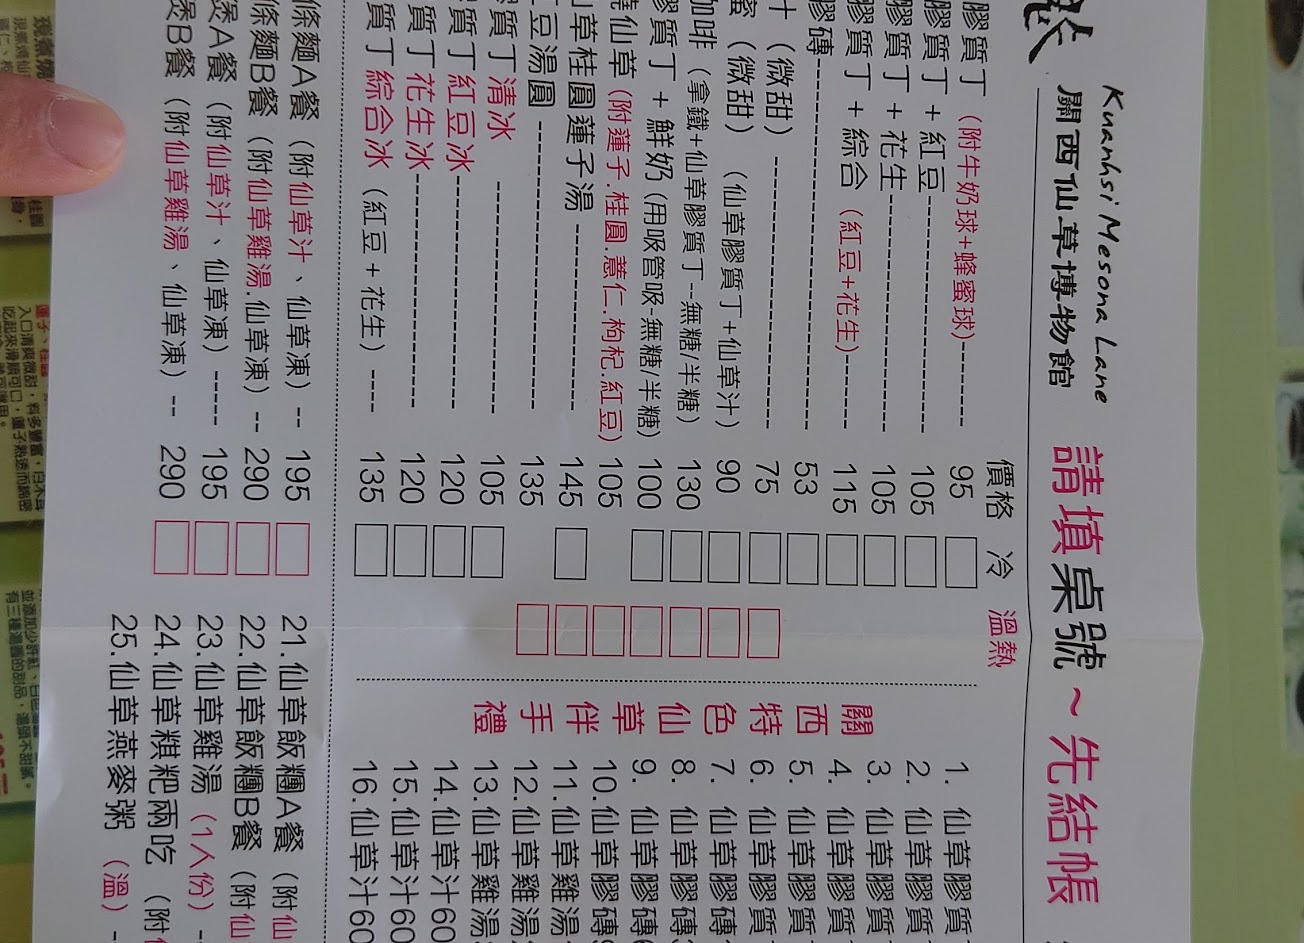 Kuanhsi Mesona Lane
關西仙草博物館 請填桌號～先結帳
價格 冷 溫熱
膠質丁（附牛奶球+蜂蜜球）------ 95
膠質丁 + 紅豆------ 105
膠質丁 + 花生------ 105
膠質丁 + 綜合（紅豆+花生）----- 115
膠磚------ 53
汁（微甜）------ 75
蜜（微甜）（仙草膠質丁+仙草汁） 90
咖啡（拿鐵+仙草膠質丁--無糖/半糖） 130
質丁 + 鮮奶(用吸管吸-無糖/半糖) 100
燒仙草（附蓮子.桂圓.薏仁.枸杞.紅豆） 105
草桂圓蓮子湯------ 145
豆湯圓------ 135
質丁清冰------ 105
質丁紅豆冰------ 120
質丁花生冰------ 120
質丁綜合冰（紅豆+花生）---- 135
條麵A餐（附仙草汁、仙草凍）-- 195
條麵B餐（附仙草雞湯.仙草凍）-- 290
煲A餐（附仙草汁、仙草凍）----- 195
煲B餐（附仙草雞湯、仙草凍）-- 290
關西特色仙草伴手禮
1. 仙草膠質
2. 仙草膠質
3. 仙草膠質
4. 仙草膠質
5. 仙草膠質
6. 仙草膠質
7. 仙草膠磚
8. 仙草膠磚
9. 仙草膠磚
10.仙草膠磚
11.仙草雞湯
12.仙草雞湯
13.仙草雞湯
14.仙草汁60
15.仙草汁60
16.仙草汁60
21.仙草飯糰A餐（附仙
22.仙草飯糰B餐（附仙
23.仙草雞湯（1人份）--
24.仙草粿粑兩吃（附
25.仙草燕麥粥（溫）--